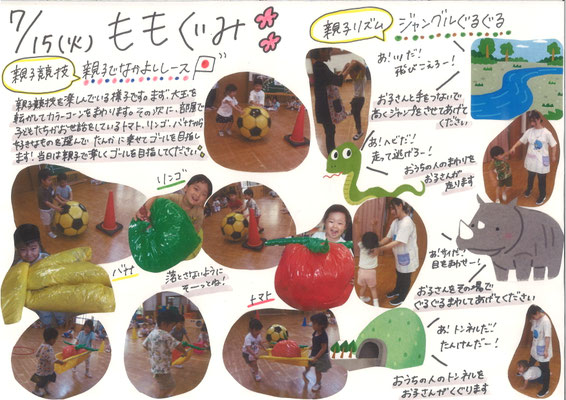 7/15(火) ももぐみ
親子競技 親子でなかよしレース
親子競技を楽しんでいる様子です。まず、大玉を
転がしてカラーコーンをまわります。その次に、部屋で
子どもたちがお世話をしているトマト、リンゴ、バナナから
好きなものを選んで、たんかに乗せてゴールを目指し
ます!当日は親子で楽しくゴールを目指してください
リンゴ
バナナ
落とさないように
そーっとね!
トマト
親子リズム ジャングルぐるぐる
あ!川だ!
飛びこえろー!
お子さんと手をつないで
高くジャンプをさせてあげて
ください
あ!ヘビだ!
走って逃げろー!
おうちの人のまわりを
お子さんが
走ります
あ!サイだ!
目をまわせー!
お子さんをその場で
ぐるぐるまわしてあげてください
あ!トンネルだ!
たんけんだー!
おうちの人のトンネルを
お子さんがくぐります